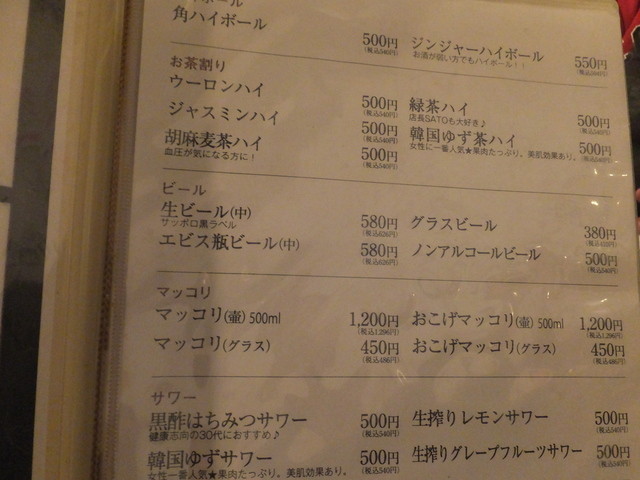 角ハイボール 500円 (税込540円)
ジンジャーハイボール 550円
お酒が弱い方でもハイボール！！
お茶割り
ウーロンハイ 500円 (税込540円)
緑茶ハイ 500円 (税込540円)
店長SATOも大好き♪
ジャスミンハイ 500円 (税込540円)
韓国ゆず茶ハイ 500円 (税込540円)
女性に一番人気★果肉たっぷり。美肌効果あり。
胡麻麦茶ハイ 500円 (税込540円)
血圧が気になる方に！
ビール
生ビール(中) 580円 (税込626円)
サッポロ黒ラベル
グラスビール 380円
エビス瓶ビール(中) 580円 (税込626円)
ノンアルコールビール 500円 (税込540円)
マッコリ
マッコリ(壷) 500ml 1,200円 (税込1,296円)
おこげマッコリ(壷) 500ml 1,200円 (税込1,296円)
マッコリ(グラス) 450円 (税込486円)
おこげマッコリ(グラス) 450円 (税込486円)
サワー
黒酢はちみつサワー 500円 (税込540円)
健康志向の30代におすすめ♪
生搾りレモンサワー 500円 (税込540円)
韓国ゆずサワー 500円 (税込540円)
女性一番人気★果肉たっぷり。美肌効果あり。
生搾りグレープフルーツサワー 500円 (税込540円)